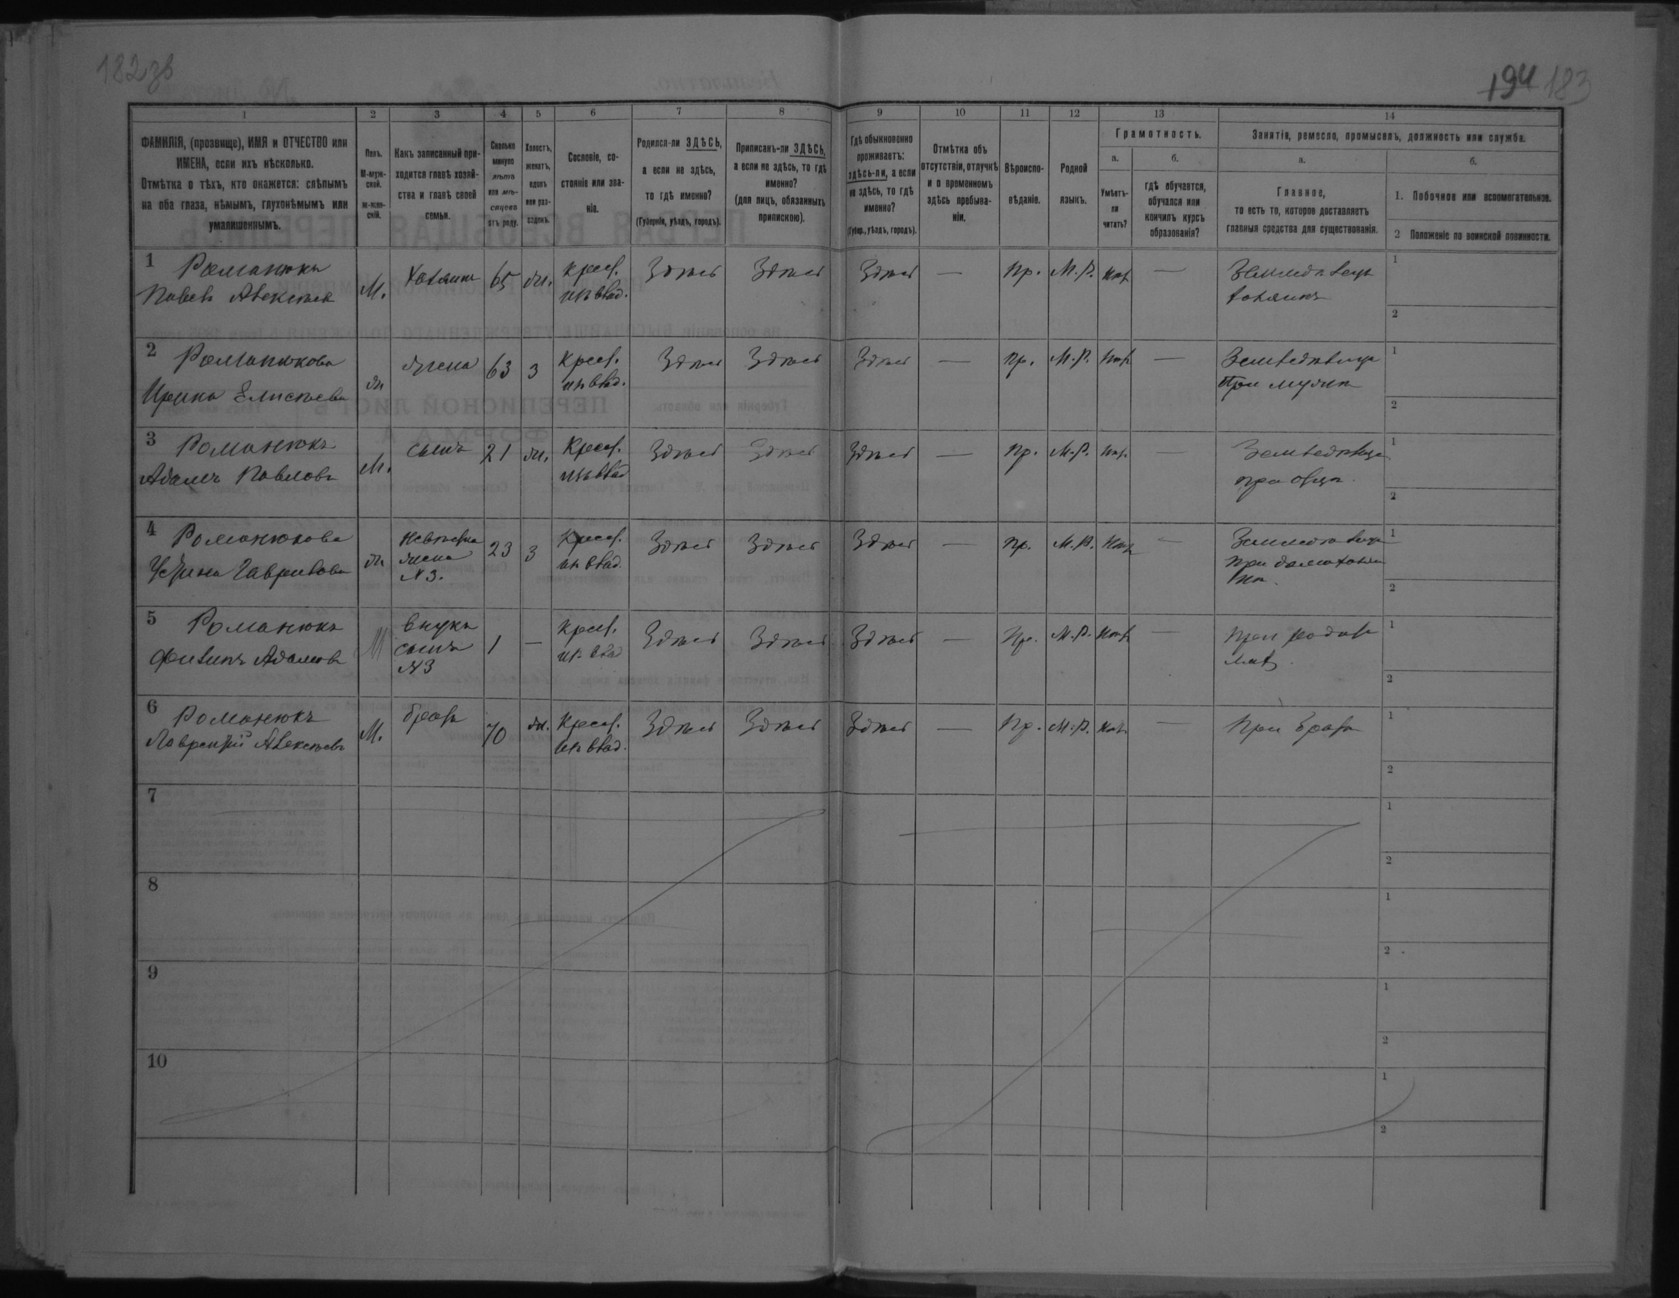 182 зв
194 183
1 2 3 4 5 6 7 8 9 10 11 12 13 14
ФАМИЛІЯ, (прозвище), ИМЯ и ОТЧЕСТВО или
ИМЕНА, если ихъ нѣсколько.
Отмѣтка о тѣхъ, кто окажется: слѣпымъ
на оба глаза, нѣмымъ, глухонѣмымъ или
умалишеннымъ.
Полъ.
М-муж-
ской.
Ж-жен-
скій.
Какъ записанный при-
ходится главѣ хозяй-
ства и главѣ своей
семьи.
Сколько
минуло
лѣтъ
или мѣ-
сяцевъ
отъ роду.
Холостъ,
женатъ,
вдовъ
или раз-
веденъ.
Сословіе, со-
стояніе или зва-
ніе.
Родился-ли ЗДѢСЬ,
а если не здѣсь,
то гдѣ именно?
(Губернія, уѣздъ, городъ).
Приписанъ-ли ЗДѢСЬ,
а если не здѣсь, то гдѣ
именно?
(для лицъ, обязанныхъ
припискою).
Гдѣ обыкновенно
проживаетъ:
здѣсь-ли, а если
не здѣсь, то гдѣ
именно?
(Губер., уѣздъ, городъ).
Отмѣтка объ
отсутствіи, отлучкѣ
и о временномъ
здѣсь пребыва-
ніи.
Вѣроиспо-
вѣданіе.
Родной
языкъ.
Грамотность.
а.
Умѣетъ-
ли
читать?
б.
гдѣ обучается,
обучался или
кончилъ курсъ
образованія?
Занятія, ремесло, промыселъ, должность или служба.
а.
Главное,
то есть то, которое доставляетъ
главныя средства для существованія.
б.
1. Побочное или вспомогательное.
2 Положеніе по воинской повинности.
1 Романюкъ
Павелъ Алексѣевъ М. Хозяинъ 65 жн. крест. изъ влад. Здѣсь Здѣсь Здѣсь — Пр. М.Р. нѣт. — Земледѣлецъ
хозяинъ
1
2
2 Романюкова
Ирина Елисѣева ж жена 63 з крест. изъ влад. Здѣсь Здѣсь Здѣсь — Пр. М.Р. нѣт. — Земледѣлица
При мужѣ
1
2
3 Романюкъ
Адамъ Павловъ М. сынъ 21 жн. Крест. изъ влад Здѣсь Здѣсь Здѣсь — Пр. М.Р. нѣт. —
при отцѣ
1
2
4 Романюкова
Гаврилова ж невѣстка
жена
№ 3. 23 з Крест. изъ влад. Здѣсь Здѣсь Здѣсь — Пр. М.Р. нѣт. — Земледѣлица
при
1
2
5 Романюкъ
Филипъ Адамовъ М внукъ
сынъ
№3 1 — Крест. изъ влад Здѣсь Здѣсь Здѣсь — Пр. М.Р. нѣт. — При родите
ляхъ
1
2
6 Романюкъ
Лаврентій Алексѣевъ М. братъ 70 жн. Крест. изъ влад. Здѣсь Здѣсь Здѣсь — Пр. М.Р. нѣт. — При братѣ
1
2
7
1
2
8
1
2
9
1
2
10
1
2